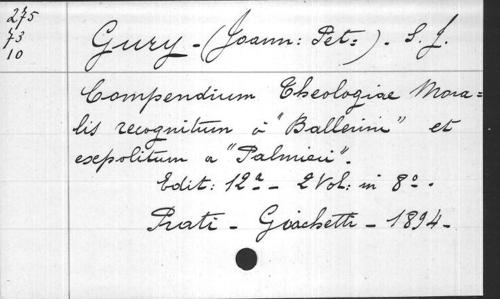 275
73
10
Gury - (Joann: Pet:) - S. J.
Compendium Theologiae Mora=
lis recognitum à "Ballerini" et
expolitum a "Palmieri".
Edit: 12ª - 2 Vol: in 8º.
Prati - Giachetti - 1894 -